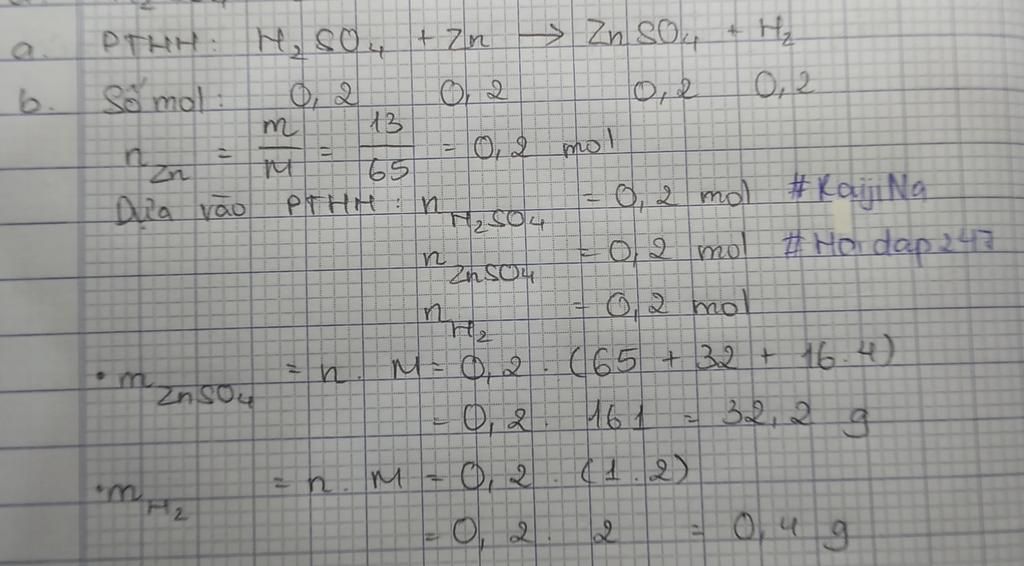 a. PTHH: H₂SO₄ + Zn → ZnSO₄ + H₂
b. Số mol: 0,2 0,2 0,2 0,2
n_Zn = m/M = 13/65 = 0,2 mol
Dựa vào PTHH: n_H₂SO₄ = 0,2 mol #KaijiNa
n_ZnSO₄ = 0,2 mol #Hoidap247
n_H₂ = 0,2 mol
• m_ZnSO₄ = n. M = 0,2 . (65 + 32 + 16.4)
= 0,2 . 161 = 32,2 g
• m_H₂ = n. M = 0,2 . (1.2)
= 0,2 . 2 = 0,4 g